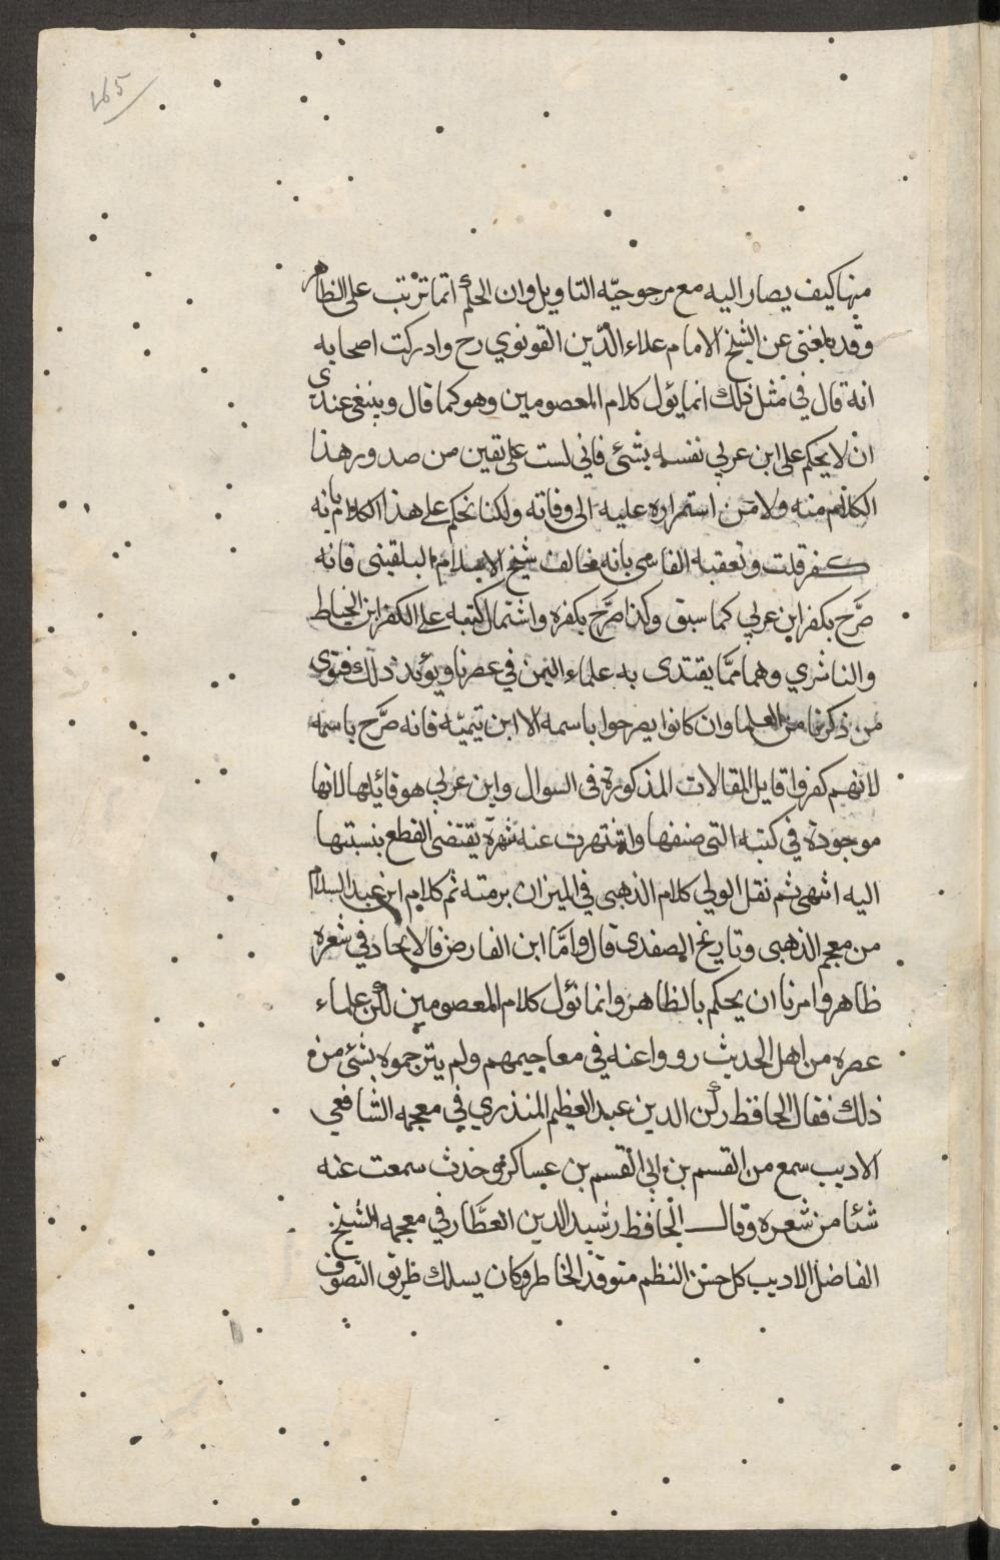 165
منها كيف يصار اليه مع مرجوحيّه التاويل وان الحكم انما ترتب على الظاهر
وقد بلغني عن الشيخ الامام علاء الدّين القونوي رح وادركت اصحابه
انه قال في مثل ذلك انما يؤل كلام المعصومين وهو كما قال وينبغي عندي
ان لا يحكم على ابن عربي نفسه بشئ فاني لست على يقين من صدور هذا
الكلام منه ولا من استمراره عليه الى وفاته ولكنا نحكم على هذا الكلام بانه
كفر قلت وتعقبه الفاسي بانه مخالف شيخ الاسلام البلقيني فانه
صَرَّح بكفر ابن عربي كما سبق وكذا صَرَّح بكفره واشتمال كتبه على الكفر ابن الخياط
والناشري وهما ممَّا يقتدى به علماء اليمن في عصرنا ويؤيد ذلك فتوى
من ذكرنا من العلما وان كانوا يصرحوا باسمه الا ابن تيميّه فانه صَرَّح باسمه
لانهم كفروا قايل المقالات المذكورة في السوال وابن عربي هو قائلها لانها
موجودة في كتبه التي صنفها واشتهرت عنه شهرة يقتضى القطع بنسبتها
اليه انتهى ثم نقل الولي كلام الذهبى في الميزان برمته ثم كلام ابن عبد السلام
من معجم الذهبى وتاريخ الصفدى قال وامَّا ابن الفارض فالاتحاد في شعره
ظاهر وامرنا ان يحكم بالظاهر وانما نؤل كلام المعصومين لكن علماء
عصره من اهل الحديث رووا عنه في معاجيمهم ولم يترجموه بشئ من
ذلك فقال الحافظ ركن الدين عبد العظيم المنذري في معجمه الشافعي
الاديب سمع من القسم بن ابي القسم بن عساكر وحدث سمعت عنه
شئا من شعره وقال الحافظ رشيد الدين العطَّار في معجمه الشيخ
الفاضل الاديب كل حسن النظم متوقد الخاطر وكان يسلك طريق التصوف